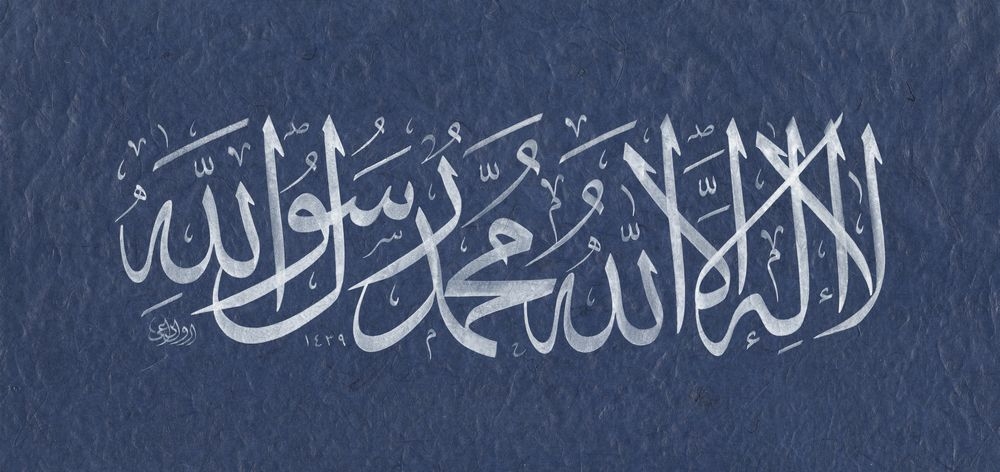 لا إله إلا الله محمد رسول الله
١٤٣٩